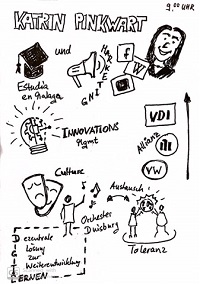 9.00 UHR
KATRIN PINKWART
und
MARKETING
f
W
Estudia
en Malaga
VDI
INNOVATIONS
Mgmt
Allianz
VW
Culture
Orchester
Duisburg
Austausch
Toleranz
Dezentrale
Lösung
zur
Weiterentwicklung
LERNEN